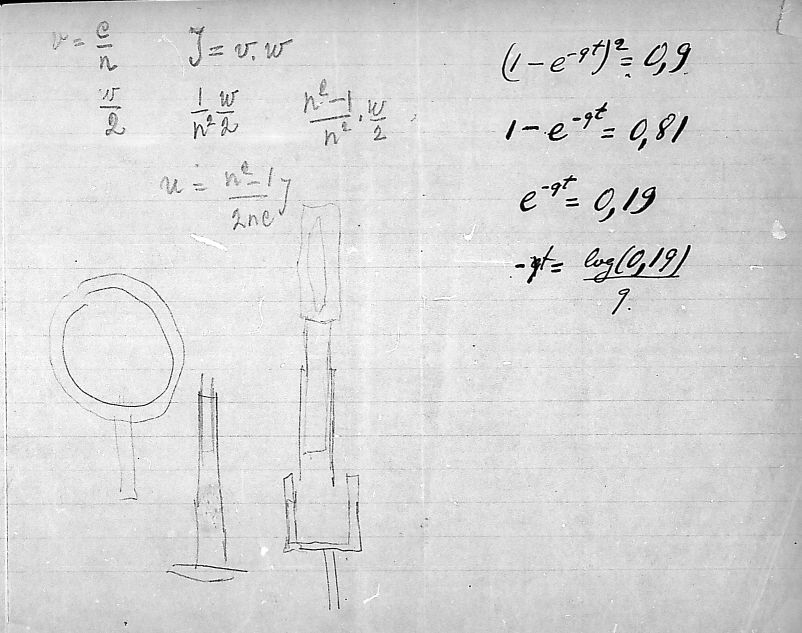 v = c/n   J = v.w
v/2   1/n² w/2   n²-1/n² . w/2
u = n²-1/2nc J
(1-e^-qt)² = 0,9
1-e^-qt = 0,81
e^-qt = 0,19
-qt = log(0,19)/q.